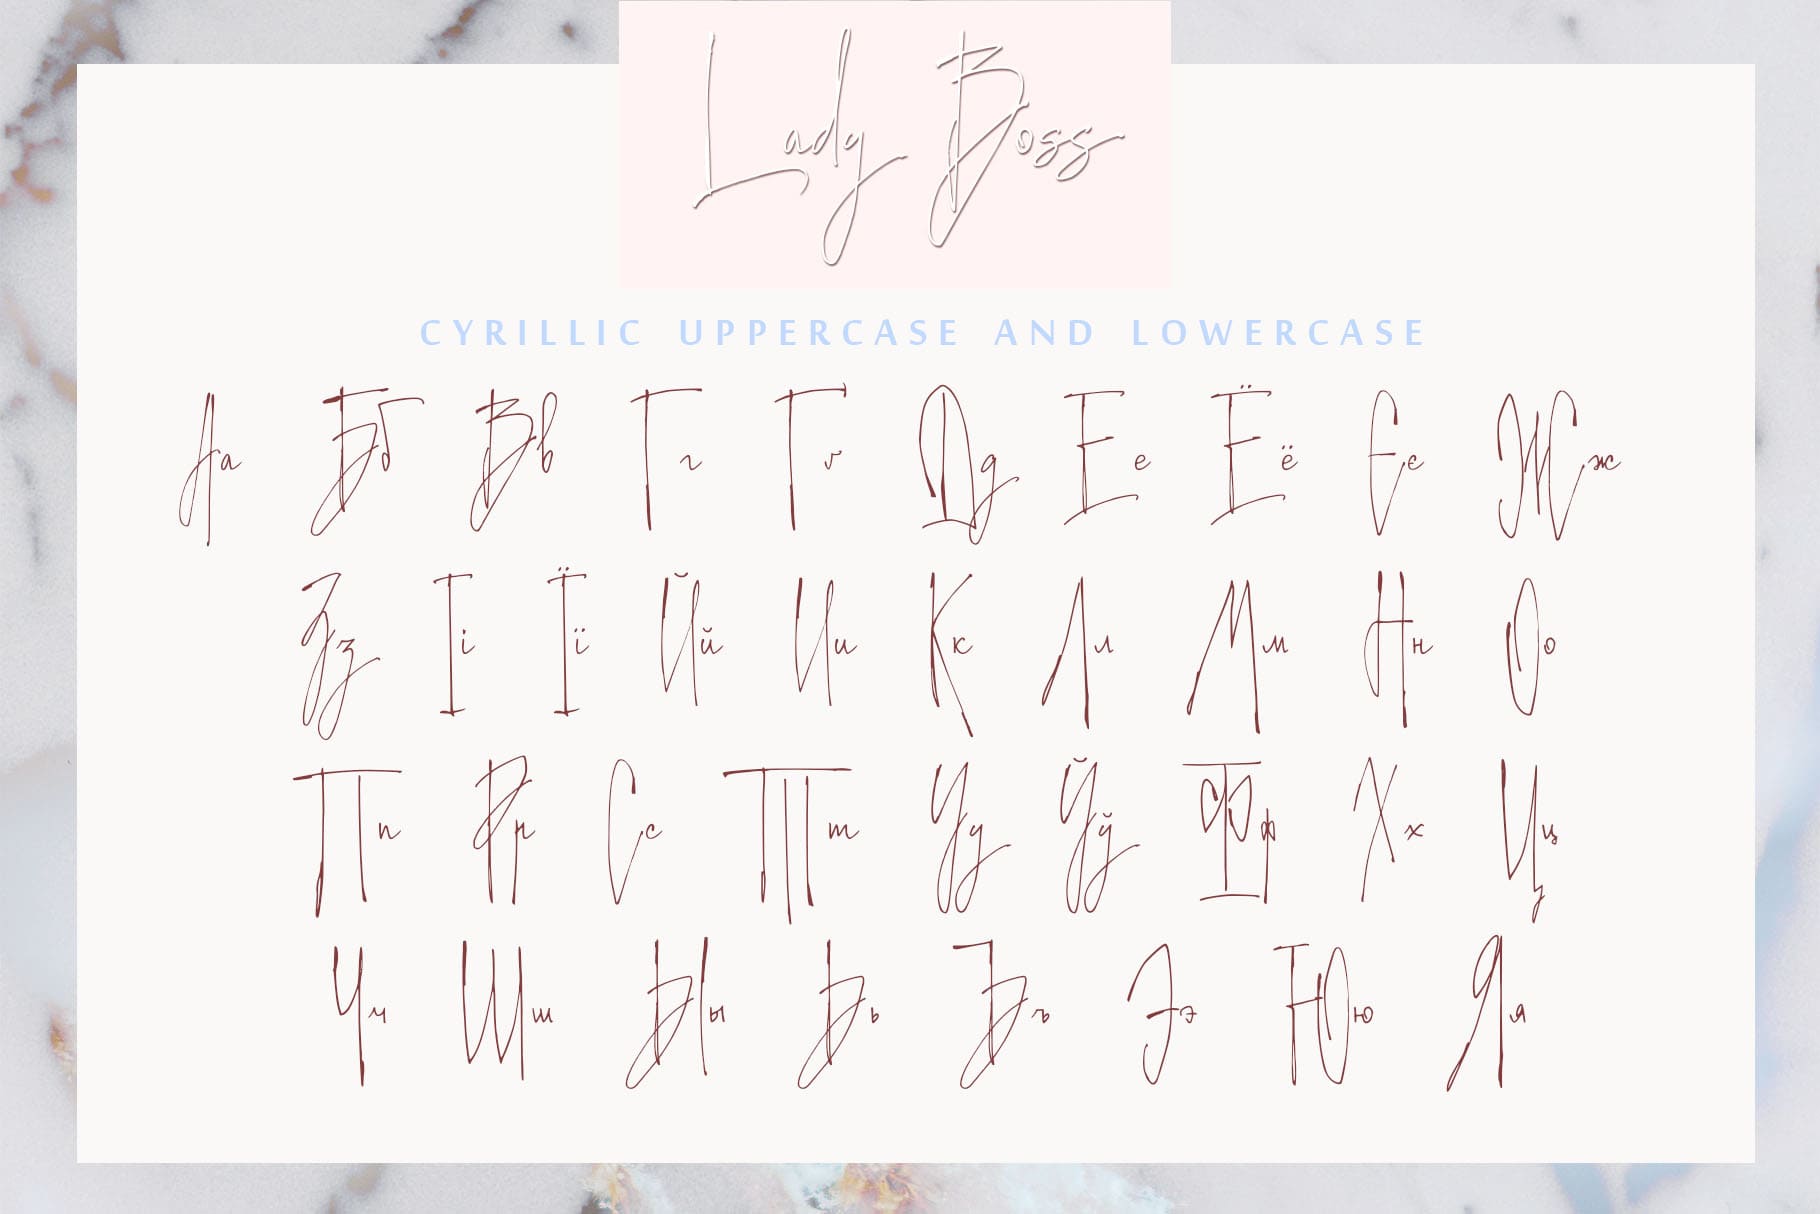 Lady Boss
CYRILLIC UPPERCASE AND LOWERCASE
Аа Бб Вв Гг Ґґ Дд Ее Ёё Єє Жж
Зз Іі Її Йй Ии Кк Лл Мм Нн Оо
Пп Рр Сс Тт Уу Ўў Фф Хх Цц
Чч Шш Ыы Ьь Ъъ Ээ Юю Яя